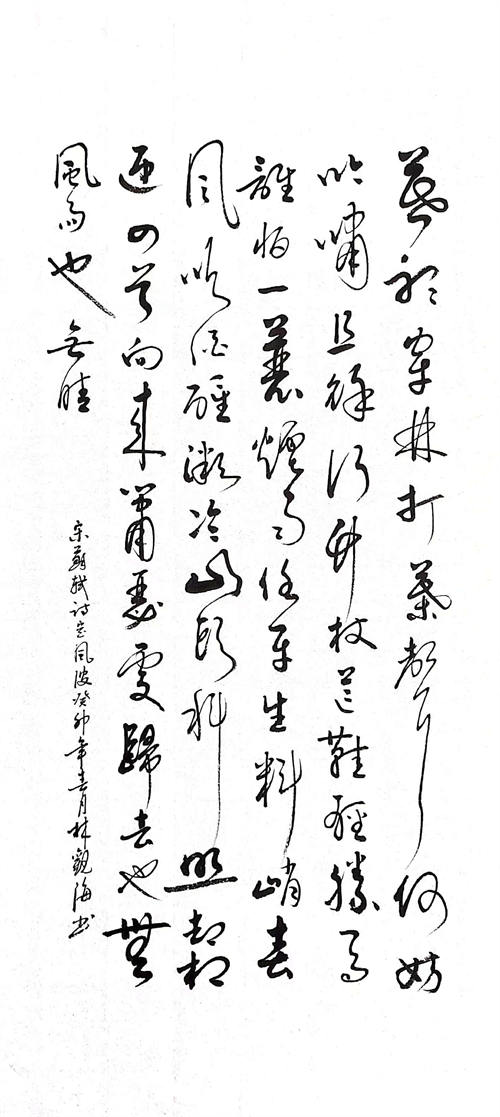 莫聽穿林打葉聲何妨
吟嘯且徐行竹杖芒鞋輕勝馬
誰怕一蓑煙雨任平生料峭春
風吹酒醒微冷山頭斜照却相
迎回首向來蕭瑟處歸去也無
風雨也無晴
宋蘇軾詩定風波癸卯年春月林觀海书